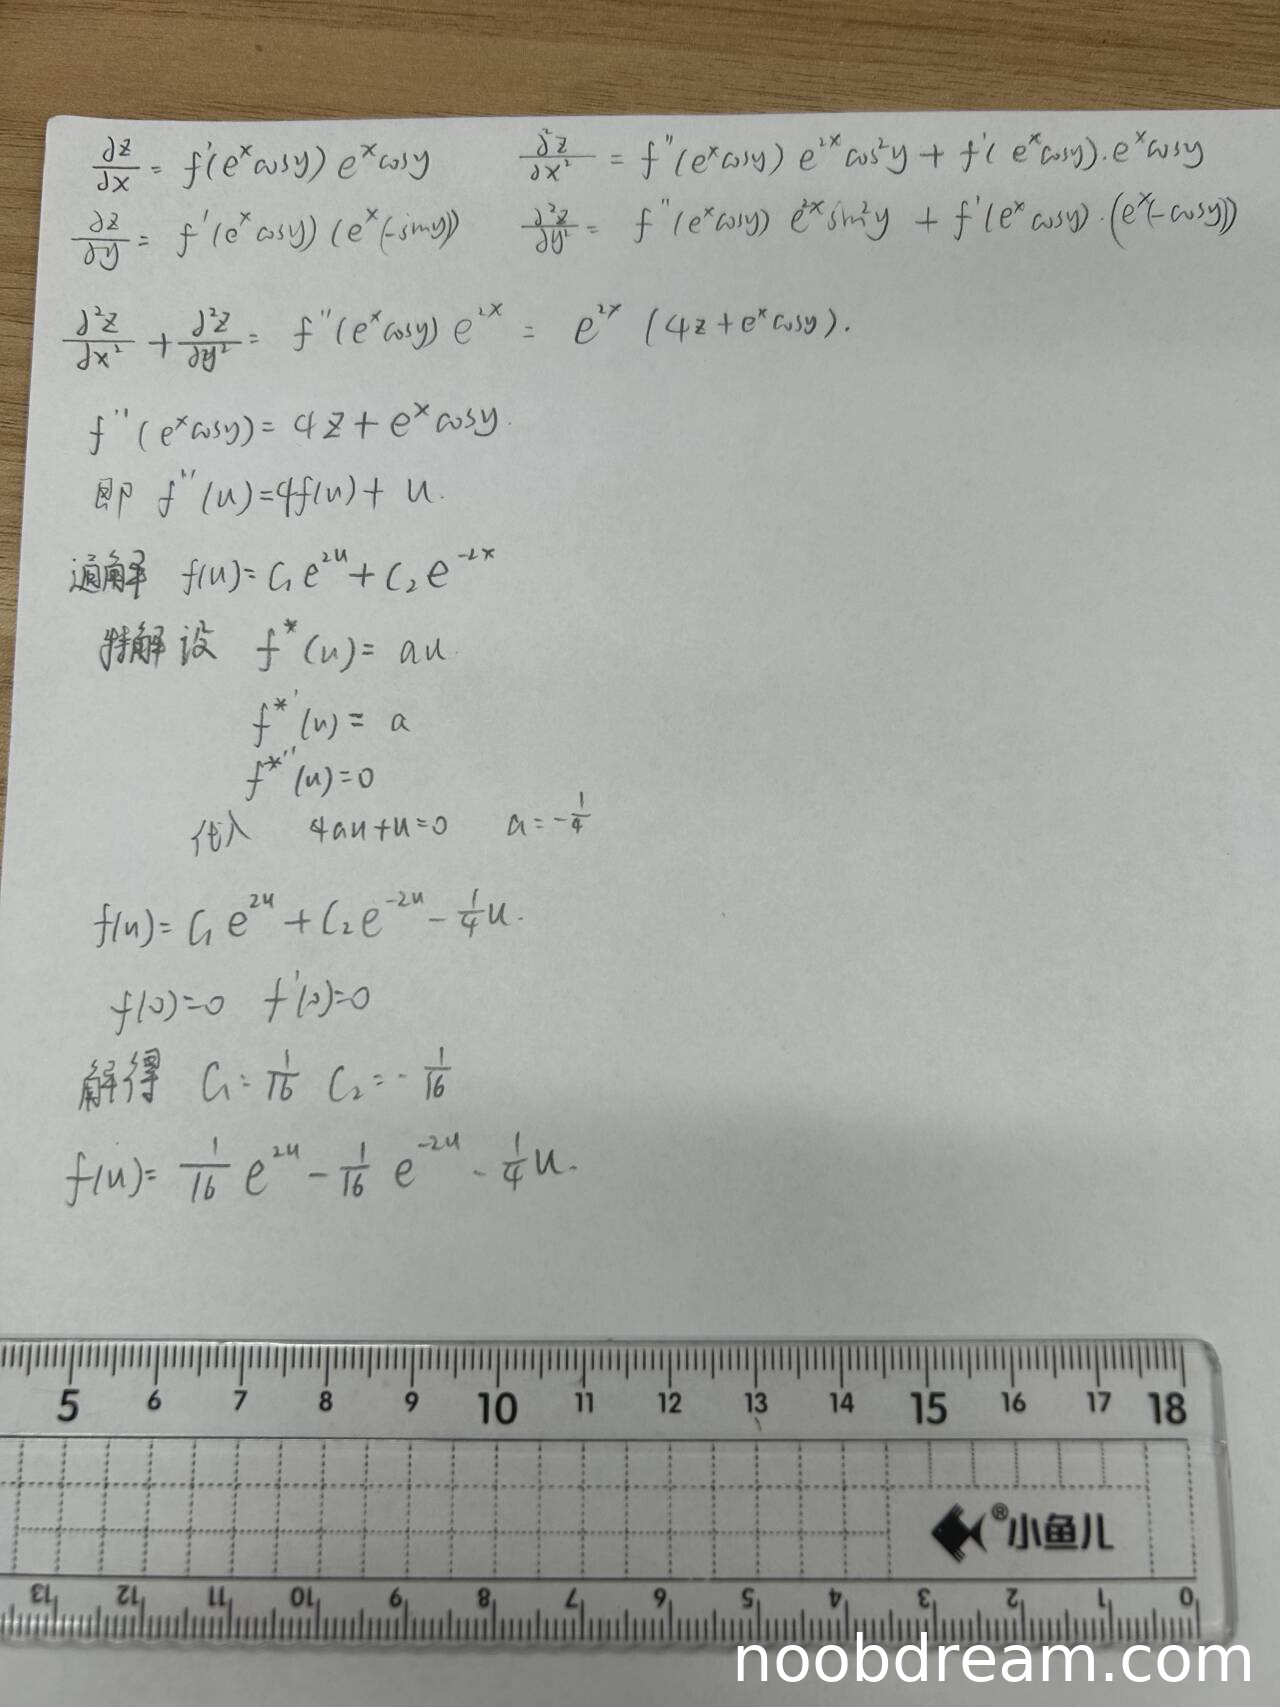 ∂z/∂x = f'(e^x cosy) e^x cosy    ∂²z/∂x² = f''(e^x cosy) e^{2x} cos²y + f'(e^x cosy)·e^x cosy
∂z/∂y = f'(e^x cosy)(e^x(-siny))    ∂²z/∂y² = f''(e^x cosy) e^{2x} sin²y + f'(e^x cosy)·(e^x(-cosy))
∂²z/∂x² + ∂²z/∂y² = f''(e^x cosy) e^{2x} = e^{2x} (4z + e^x cosy).
f''(e^x cosy) = 4z + e^x cosy.
即 f''(u) = 4f(u) + u.
通解 f(u) = C₁e^{2u} + C₂e^{-2x}
特解设 f*(u) = au.
f*'(u) = a
f*''(u) = 0
代入 4au+u=0 a = -1/4
f(u) = C₁e^{2u} + C₂e^{-2u} - 1/4 u.
f(0)=0 f'(0)=0
解得 C₁ = 1/16 C₂ = -1/16
f(u) = 1/16 e^{2u} - 1/16 e^{-2u} - 1/4 u.
5 6 7 8 9 10 11 12 13 14 15 16 17 18
®小鱼儿
13 12 11 10 9 8 7 6 5 4 3 2 1 0
noobdream.com